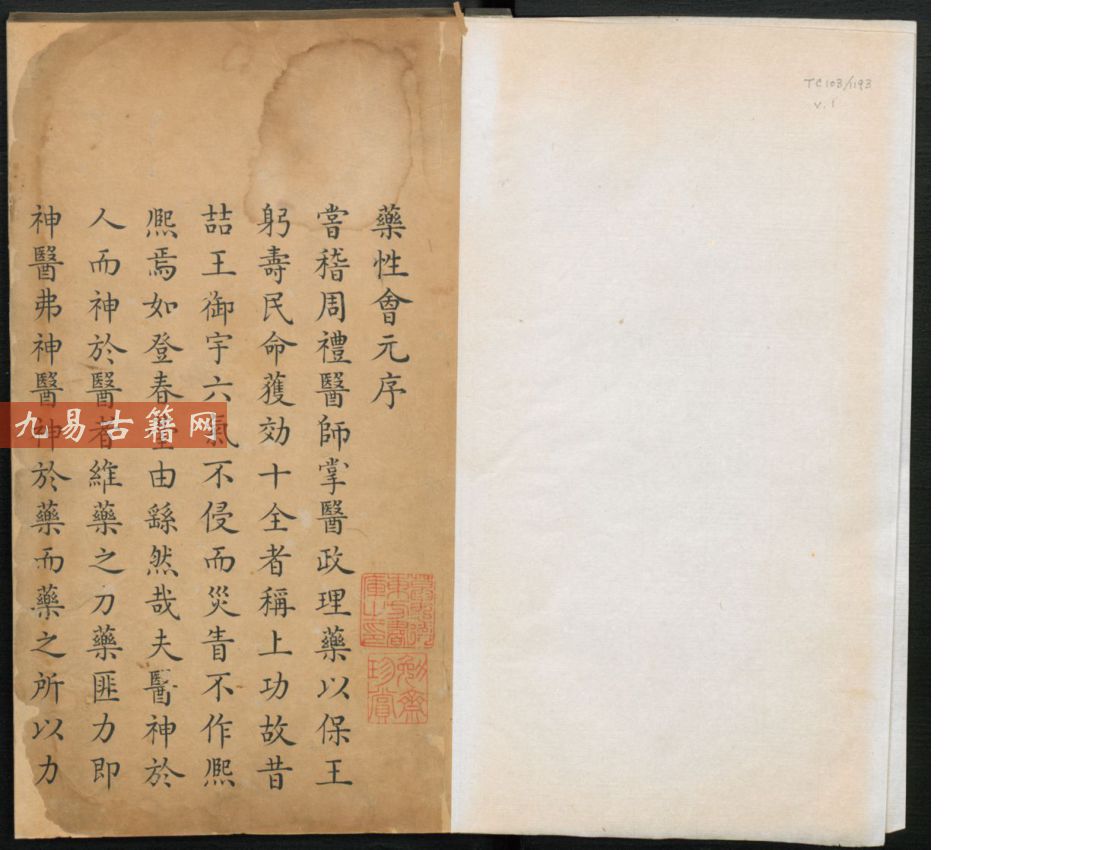 藥性會元序
嘗稽周禮醫師掌醫政理藥以保王
躬壽民命獲効十全者稱上功故昔
喆王御宇六氣不侵而災眚不作熈
熈焉如登春臺由繇然哉夫醫神於
人而神於醫者維藥之力藥匪力即
神醫弗神醫神於藥而藥之所以力
勉齋
珍賞
TC103/1193
v.1
九易古籍网